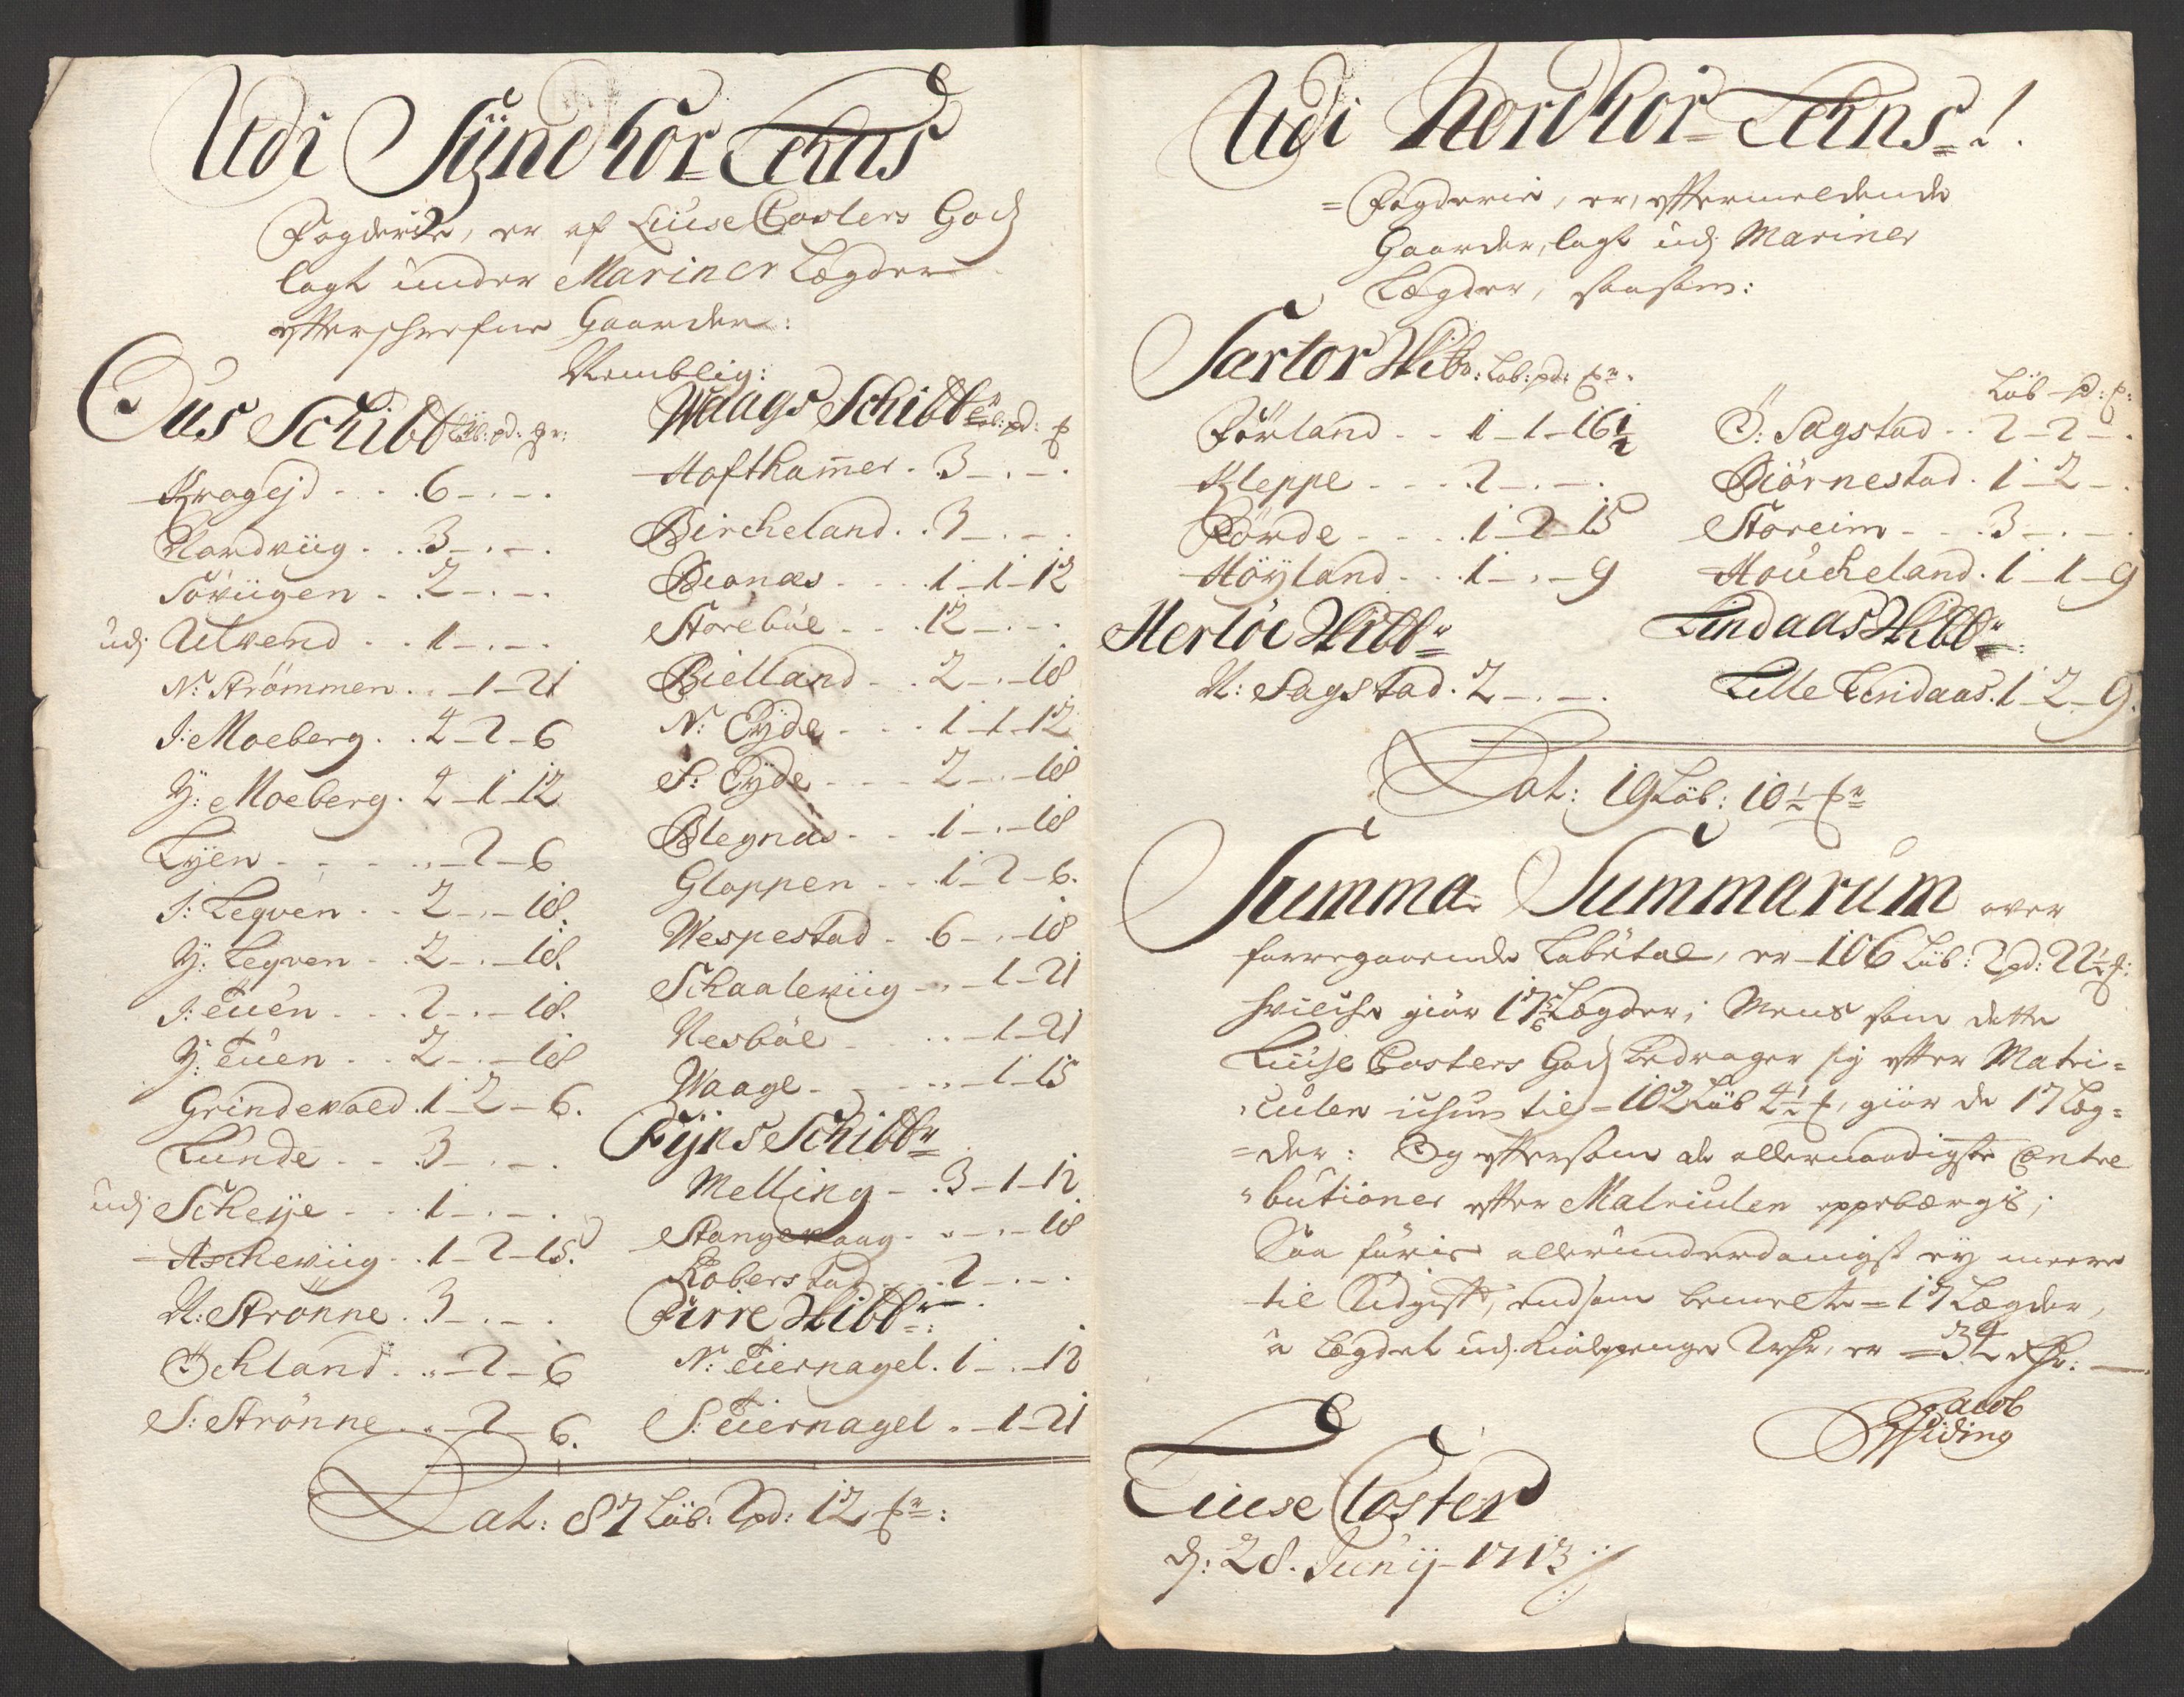 Udi Syndhor Lehns
Fogderie, er af Liuse Closters Godz
lagt under Mariner Lægder
effterschrefne Gaarder:
Nemblig:
Ous Schibb Løb: pd: mr:
Krogejd - - . 6 - . - .
Nordviig . . 3 - . - .
Søviigen . . 2 - . - .
udj Utvend . . 1 - . - .
N: Strømmen . . - 1 - 21
I: Moeberg . . 4 - 2 - 6
Y: Moeberg . 4 - 1 - 12
Lyen - - - . . - 2 - 6
I: Leqven . . 2 - . - 18.
Y: Leqven . . 2 - . - 18.
I: Tuen . . . 2 - . - 18.
Y: Tuen . . 2 - . - 18
Grindevold . 1 - 2 - 6.
Lunde . . . 3 - . - .
udj Scheye . . . 1 - . - .
Ascheviig . . 1 - 2 - 15.
N: Strønne . 3 - . - .
Øchland . . . - 2 - 6
S: Strønne . . - 2 - 6.
Waags Schibbr Løb: pd: mr
Hafthamer . 3 - . - .
Bircheland . . 3 - . - .
Beanæs . . . 1 - 1 - 12
Storebøe . . . 12 - . - .
Bielland . . 2 - . - 18
N: Eyde . . . 1 - 1 - 12
S: Eyde . . . 2 - . - 18
Blegnæs . . . 1 - . - 18
Gloppen . . 1 - 2 - 6.
Wespestad . . 6 - . - 18
Schaaleviig . . - 1 - 21
Nesbøe . . . - 1 - 21
Waage . . . - 1 - 15
Fyks Schibbr
Melling . . 3 - 1 - 12
Stangevaag . . - . - 18
Roberstad . . . 2 - . - .
Fiire Schibbr
N: Tiernagel . 1 - . - 12
S: Tiernagel . . - 1 - 21
Lat: 87 Løb: 2 pd: 12 mr:
Udi Nordhor Lehns
Fogderie, er, effter meldende
Gaarder, lagt udj Mariner
Lægder, saasom:
Sartor Schibr: Løb: pd: mr.
Førland . . 1 - 1 - 16 1/2
Kleppe . . . 2 - . - .
Førde . . . 1 - 2 - 15
Høyland . . 1 - . - 9
Løb - pd: mr:
Ø: Sagstad . . 2 - 2 - .
Biørnestad . 1 - 2 - .
Storeim . . . 3 - . - .
Houcheland . 1 - 1 - 9
Herløe Schibbr
N: Sagstad . 2 - . - .
Lindaas Schibbr:
Lille Lindaas . 1 - 2 - 9.
Lat: 19 Løb: 10 1/2 mr
Summa Summarum over
forregaaende Løbetal, er 106 Løb: 2 pd: 22 1/2 mr:
hvilche giør 17 5/6 Lægder; Mens som dette
Liuse Closters Godz bedrager sig effter Matri=
culen ichun til 102 Løb 4 1/2 mr, giør de 17 Læg=
=der: Og efftersom de allernaadigste Contri
butioner effter Matriculen oppebærgis;
Saa føris allerunderdanigst ey meere
til Udgift, end som bemelte 17 Lægder,
a Lægdet udj Kiølpenge 2 rdr, er = 34 rdr:
Jacob
Widing
Liuse Closter
d: 28. Junij 1713